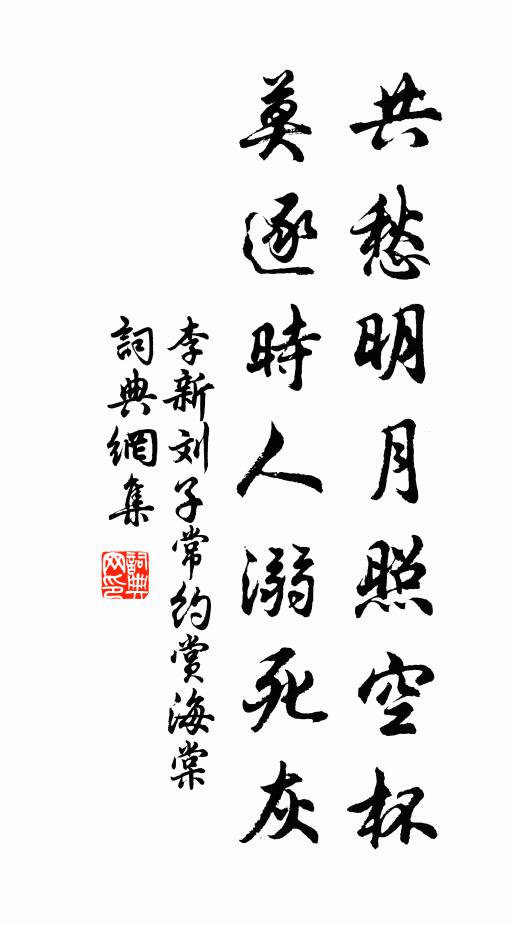 共愁明月照空杯
莫逐時人溺死灰
李新刘子常約賞海棠
詞典網集
詞典
网印